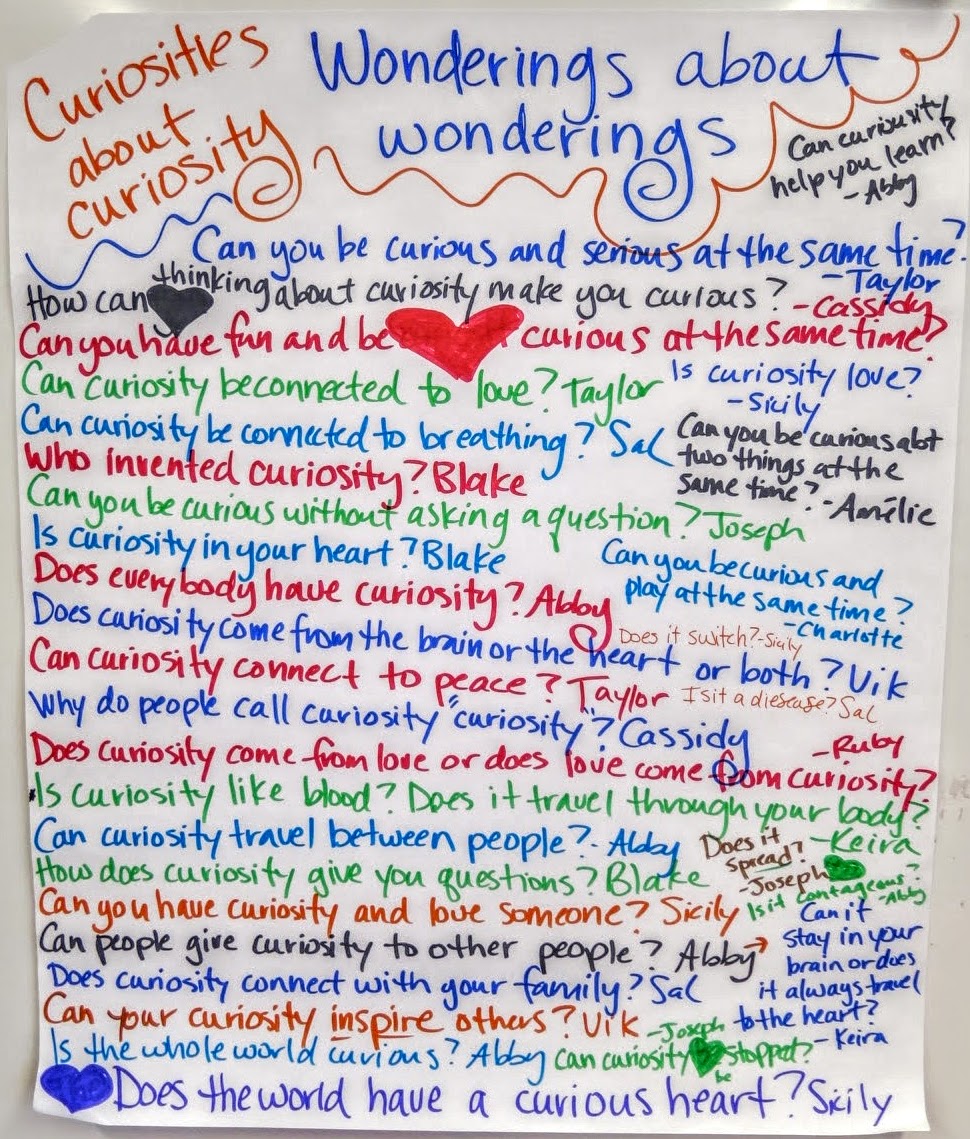 Curiosities
about
curiosity
Wonderings about
wonderings
Can curiousity
help you learn?
- Abby
Can you be curious and serious at the same time?
- Taylor
How can thinking about curiosity make you curious?
- Cassidy
Can you have fun and be curious at the same time?
Can curiosity be connected to love? Taylor
Is curiosity love?
- Sicily
Can curiosity be connected to breathing? Sal
Can you be curious abt
two things at the
same time?
- Amélie
Who invented curiosity? Blake
Can you be curious without asking a question? Joseph
Is curiosity in your heart? Blake
Can you be curious and
play at the same time?
- Charlotte
Does everybody have curiosity? Abby
Does it switch? - Sicily
Does curiosity come from the brain or the heart or both? Vik
Can curiosity connect to peace? Taylor
Is it a diesease? Sal
Why do people call curiosity "curiosity"? Cassidy
- Ruby
Does curiosity come from love or does love come from curiosity?
Is curiosity like blood? Does it travel through your body?
- Keira
Can curiosity travel between people? - Abby
Does it
spread?
- Joseph
How does curiosity give you questions? Blake
Is it contageous?
- Abby
Can you have curiosity and love someone? Sicily
Can people give curiosity to other people? Abby
Can it
stay in your
brain or does
it always travel
to the heart?
- Keira
Does curiosity connect with your family? Sal
Can your curiosity inspire others? Vik
- Joseph
Is the whole world curious? Abby
can curiosity be stopped?
Does the world have a curious heart? Sicily